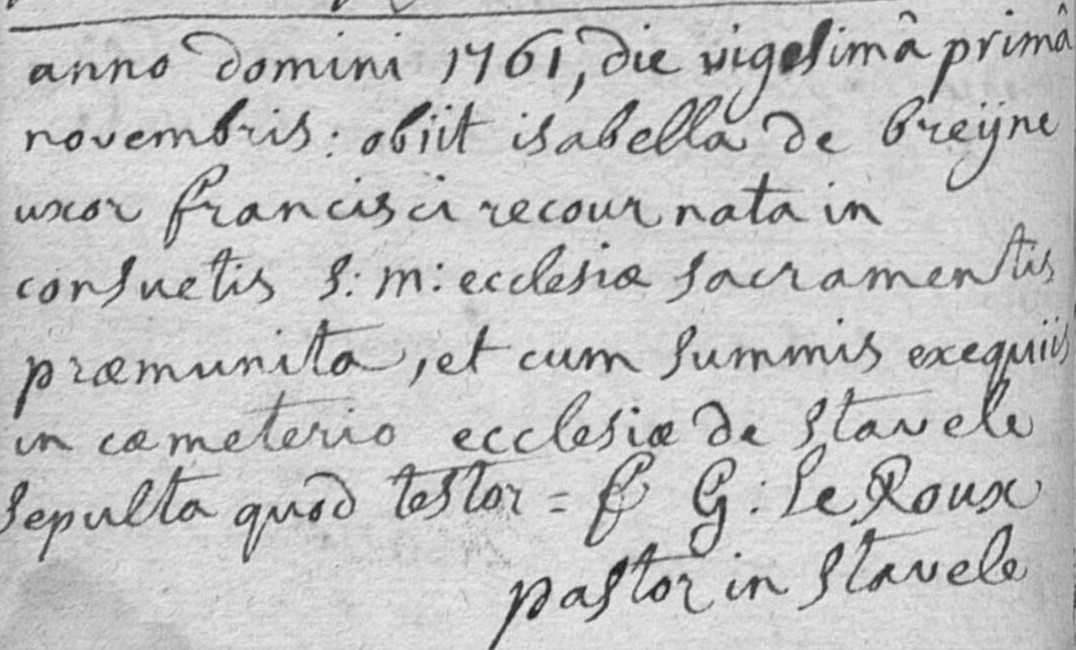 anno domini 1761, die vigesimâ primâ
novembris: obiit isabella de breÿne
uxor francisci recour nata in
consuetis S: m: ecclesiæ sacramentis
præmunita, et cum summis exequiis
in cæmeterio ecclesiæ de stavele
sepulta quod testor = f G: Le Roux
pastor in stavele